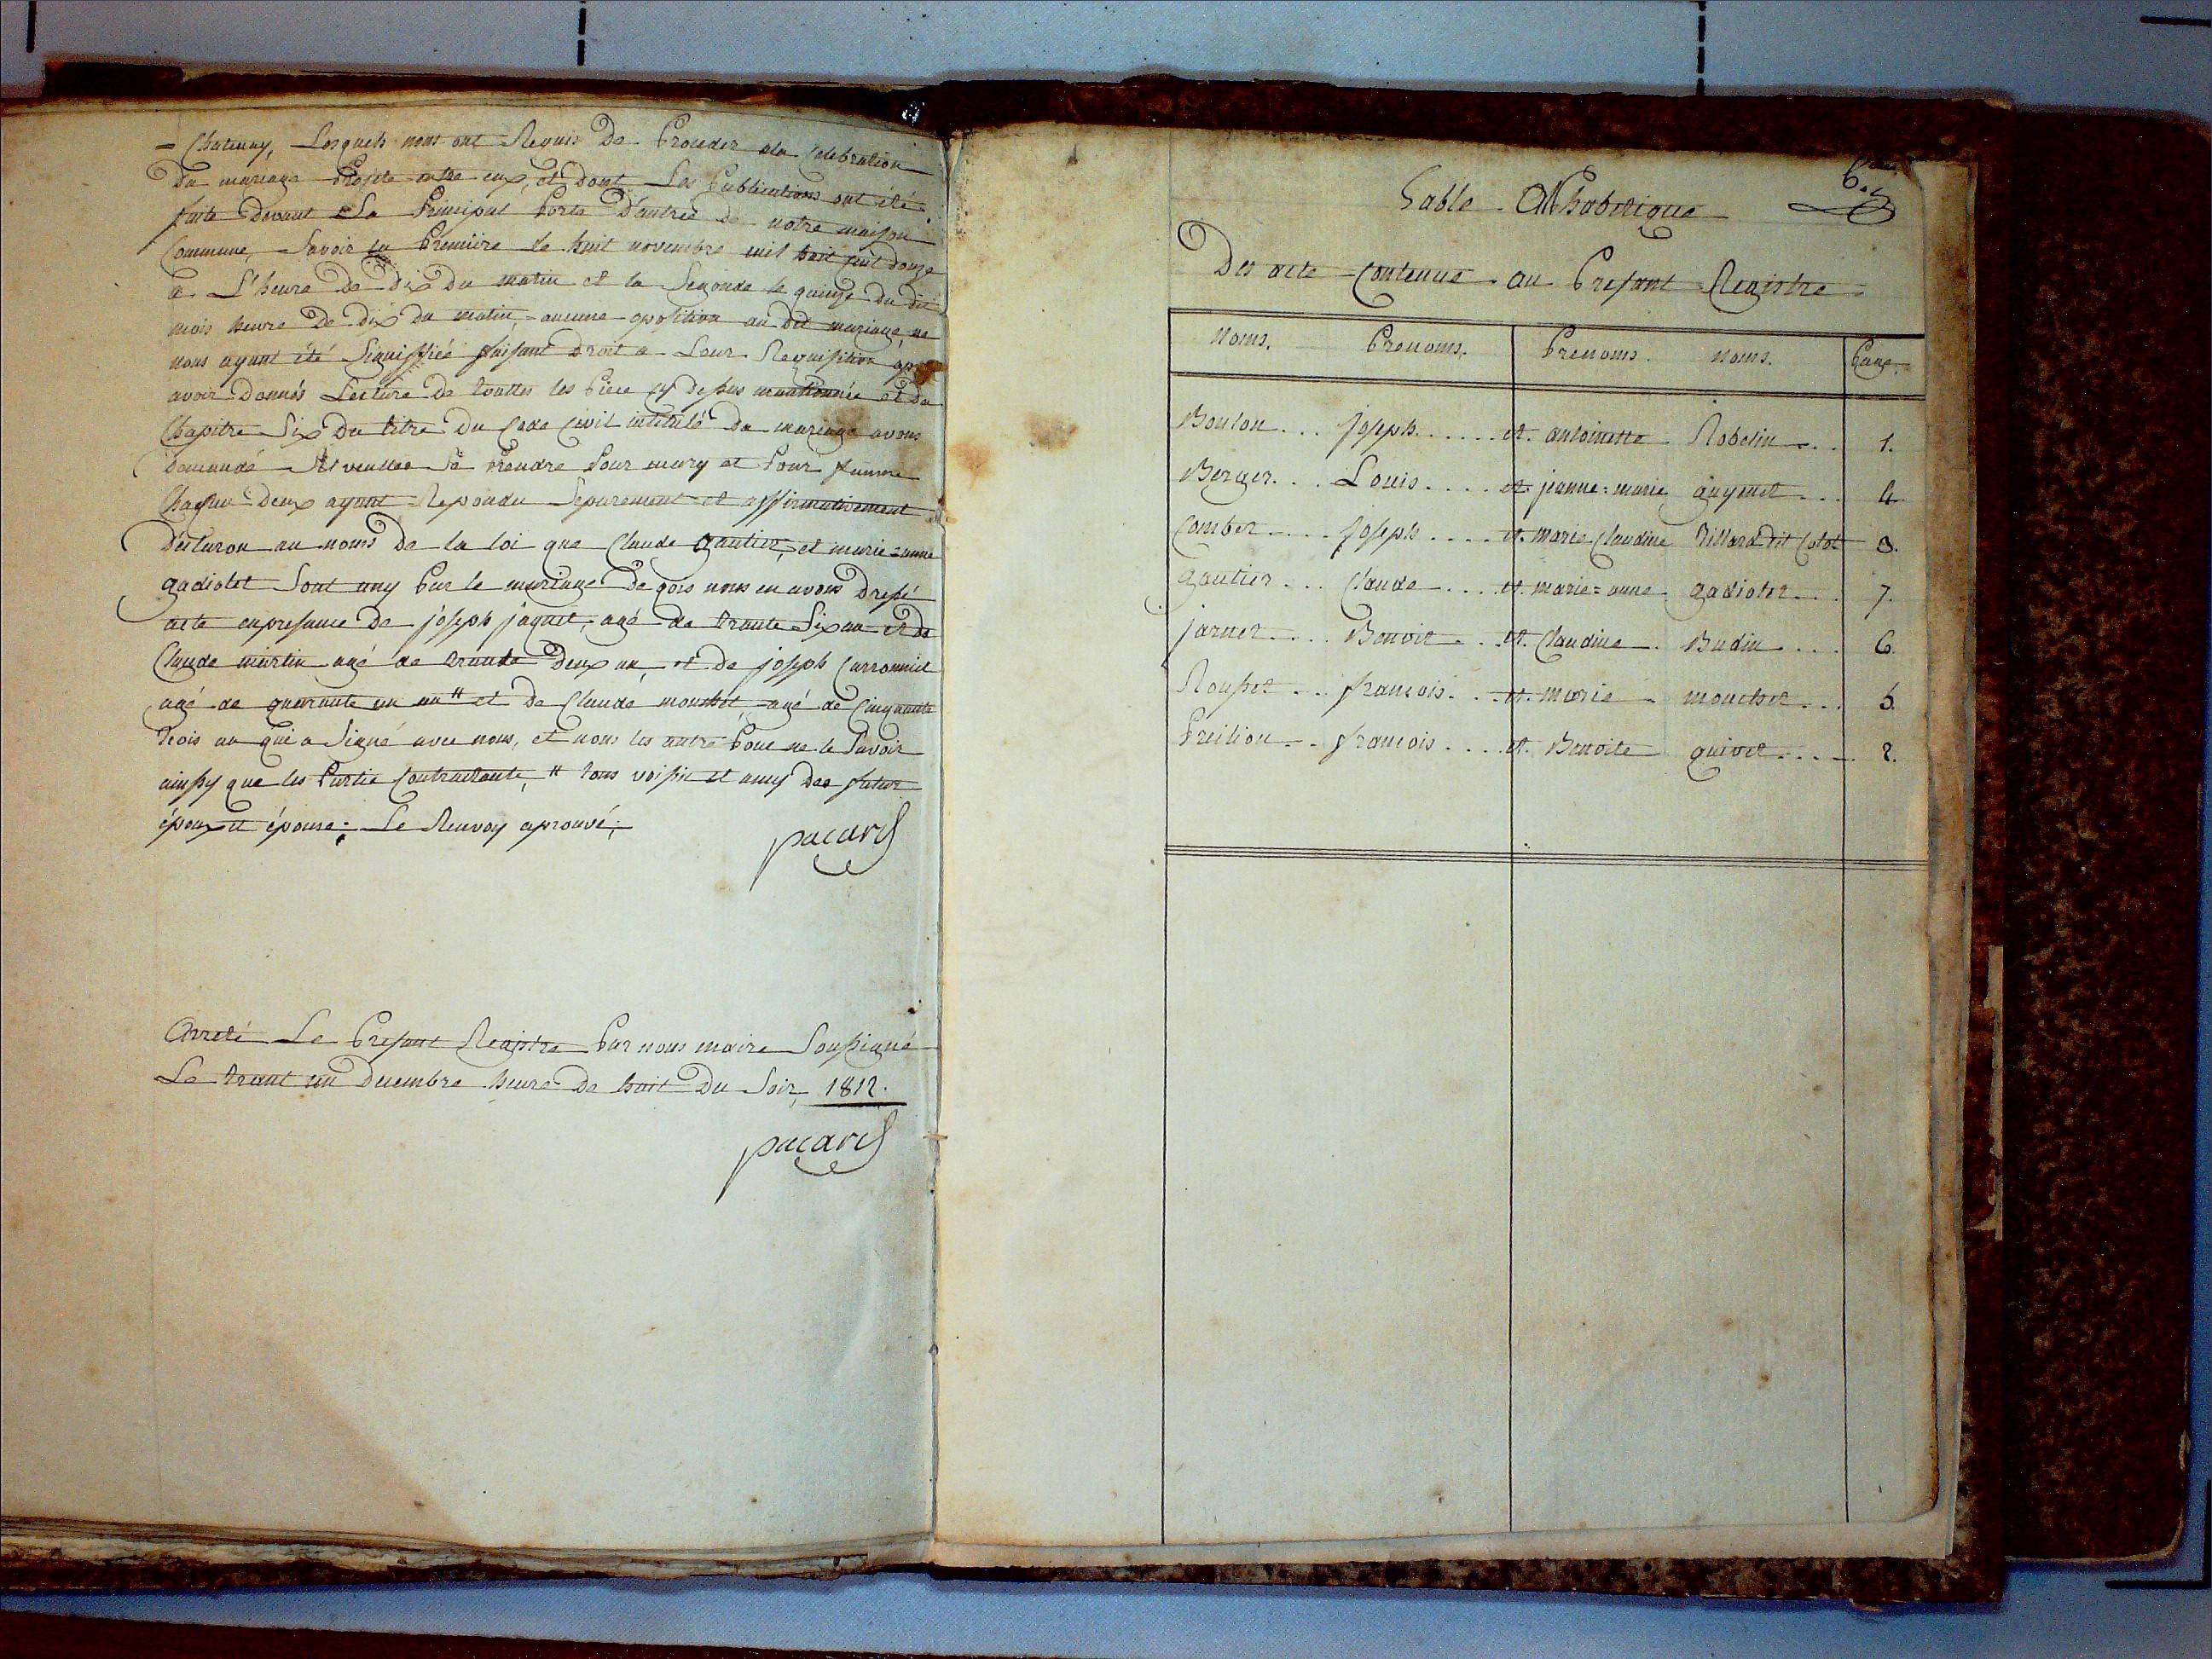 = Chatenay, Lesquels nous ont Requis De Proceder ala Celebration
Du mariage Projeté entre eux, et dont Les Publications ont été
faite Devant La Principal Porte D'entrée de notre maison
Commune, Savoir la Premiire le huit novembre mil huit cent douze
a L'heure De Dix Du matin et la Segonde le quinze du dit
mois heure De Dix Du matin, aucune oposition au dit mariage, ne
nous ayant été Signiffiée faisant Droit a Leur Requisition apré
avoir Donnés Lecture De touttes les Pièce cy dessus mentionnée et Du
Chapitre Six Du titre Du Code Civil intitulé Du mariage avons
Demandé Se Prendre Pour mary et Pour femme
Chaqun Deux ayant Repondu Separement et affirmativement
Déclaron au noms De la loi que Claude Gautier, et marie=anne
gadiolet Sont uny Par le mariage De qois nous en avons Dressé
acte enpresance De joseph jaquet, agé de trante Six an et de
Claude martin agé de trante Deux an, et de joseph Carronnict
agé de quarante un an" et De Claude mouchet, agé de Cinquante
trois an qui a Signé avec nous, et nous les autre Pour ne le Savoir
ainssy que les Partie Contractante, " tous voisin et amy des futur
époux et épouse: Le Renvoy aprouvé;
pacard
Arreté Le Presant Registre Par nous maire Soussigné
Le trant un Decembre heure De huit Du Soir, 1812.
pacard
6.e
Table Alphabetique
Des acte Contenue au Presant Registre
Noms. Prenoms. Prenoms. Noms. Page.
Bouton ... joseph ..... et. antoinette Robelin ... 1.
Berger ... Louis .... et. jeanne=marie guymet ... 4.
Combet .... joseph .... et. marie Claudine Billard dit Colot 3.
gautier ... Claude .... et. marie=anne gadiolet ... 7.
jarnet .... Benoit .. et. Claudine . Budin .... 6.
Rousset ... françois. .. et. marie mouchet ... 5.
Preition ... françois .... et. Benoite guivet .... 2.